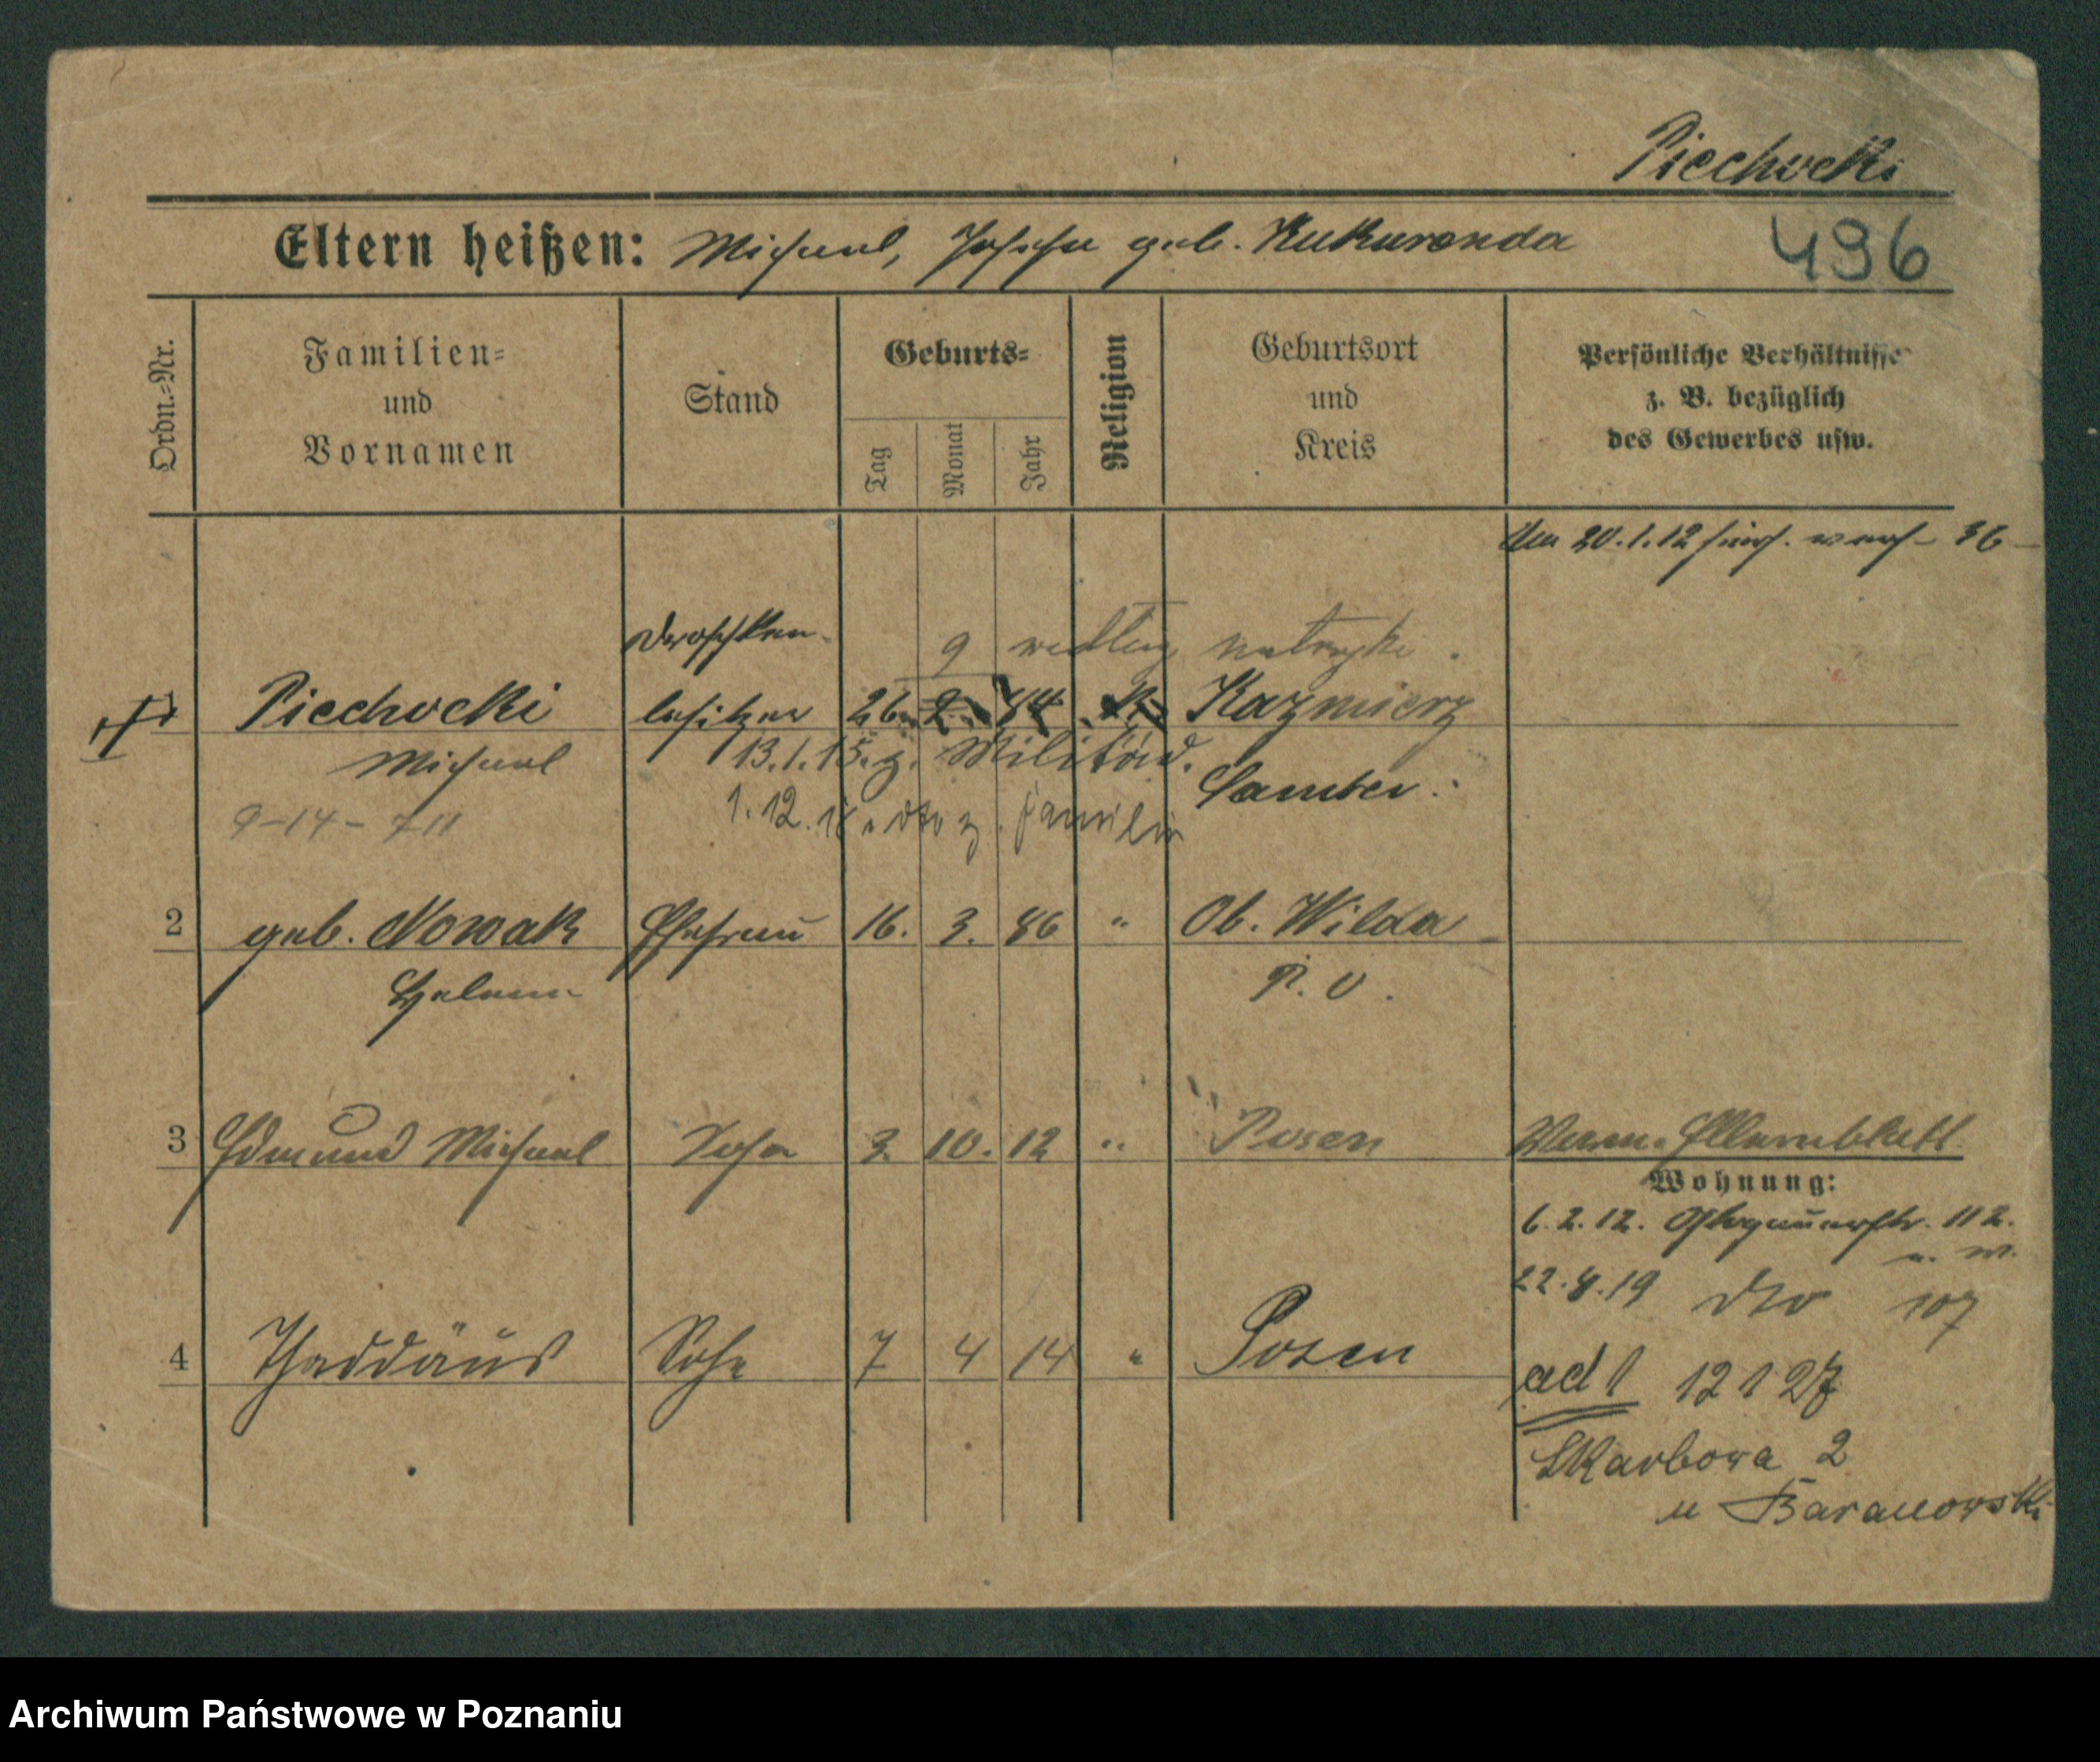 Piechocki
Eltern heißen: Michael, Josefa geb. Kukuronda
496
Ordn.=Nr.
Familien=
und
Vornamen
Stand
Geburts=
Tag
Monat
Jahr
Religion
Geburtsort
und
Kreis
Persönliche Verhältnisse
z. B. bezüglich
des Gewerbes usw.
20.1.12 36
Droschken-
9 według metryki.
Piechocki besitzer 26. 9. 84 K. Kazmierz
Michael
13.1.15. z. Militär.
Samter.
9-14-711
1.12.18 dto z. Familie
2 geb. Nowak Ehefrau 16. 3. 86 " Ob. Wilda
Helene
P. O.
3 Edmund Michael Sohn 3. 10. 12 " Posen
Wohnung:
6.2.12. Glogauerstr. 112.
u. w.
22.8.19 dto 107
4 Thaddäus Sohn 7 4 14 " Posen
ad 1 12 1 27
Skarbowa 2
u Baranowski
Archiwum Państwowe w Poznaniu